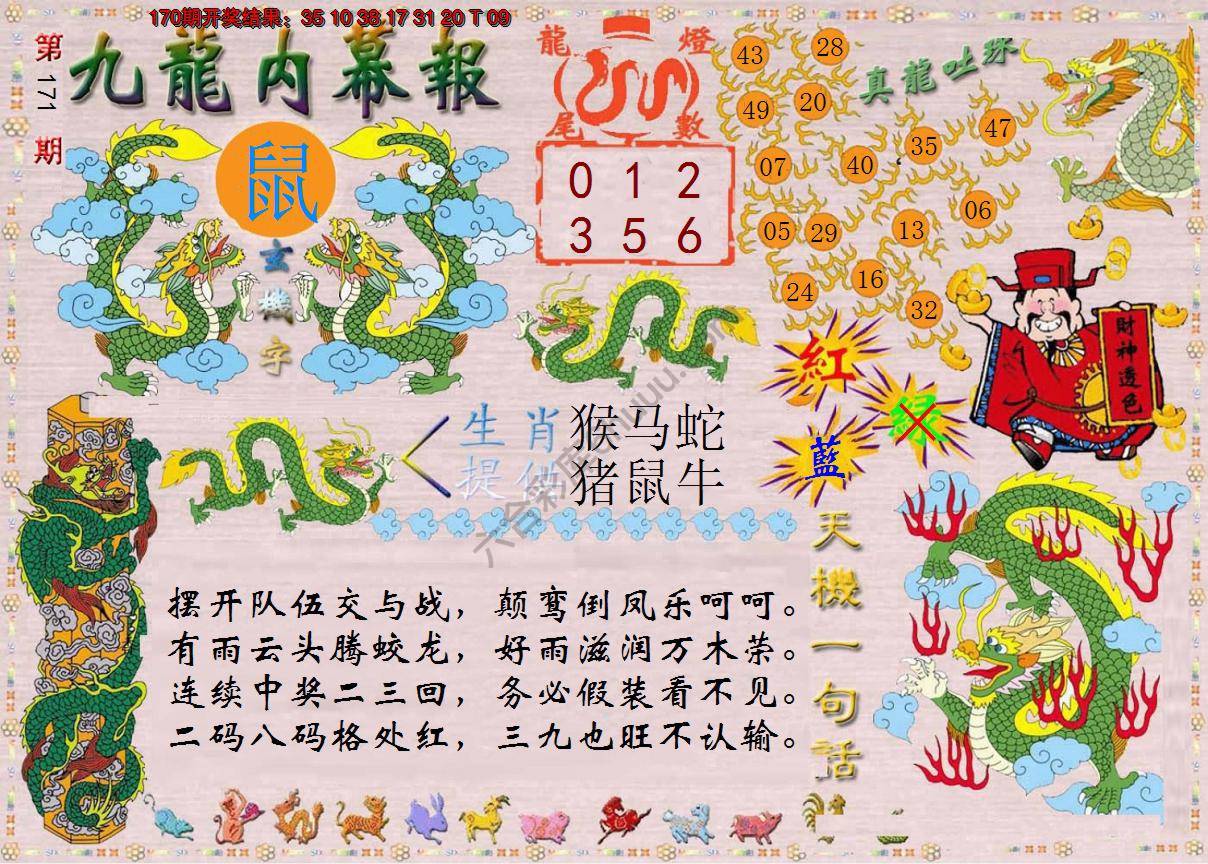 170期开奖结果：35 10 38 17 31 20 T 09
第171期
九龍内幕報
鼠
玄機字
龍燈
尾數
0 1 2
3 5 6
真龍吐珠
43 28
49 20
07 40 35 47
05 29 13 06
24 16 32
財神透色
紅
绿
藍
生肖 猴马蛇
提供 猪鼠牛
天機一句話
摆开队伍交与战，颠鸾倒凤乐呵呵。
有雨云头腾蛟龙，好雨滋润万木荣。
连续中奖二三回，务必假装看不见。
二码八码格处红，三九也旺不认输。